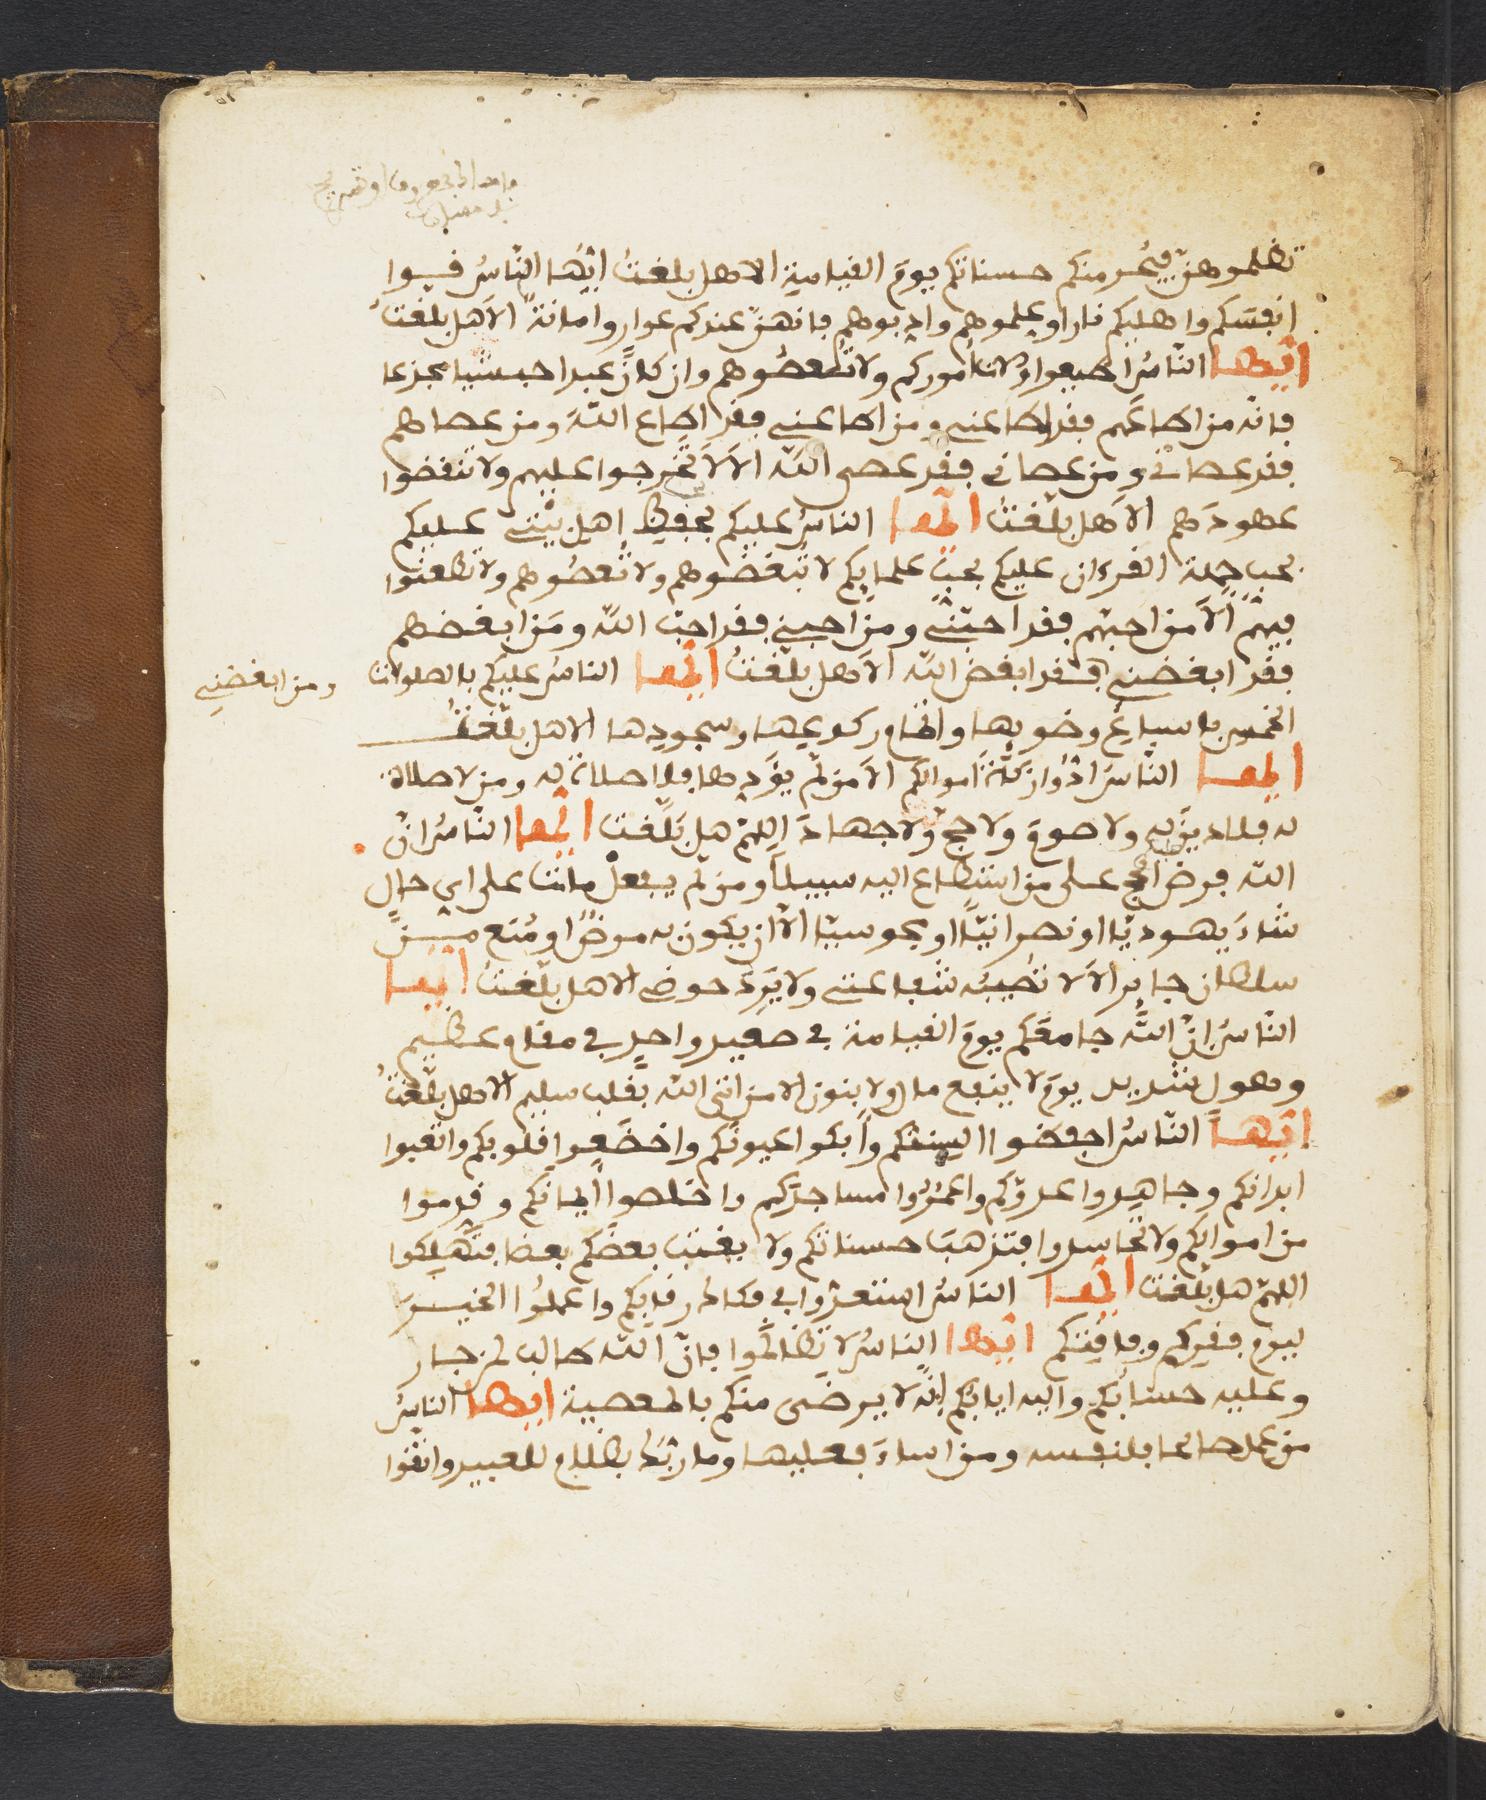 تظلموهن فيخسر منكم حسناتكم يوم القيامة الا هل بلغت ايّها الناس قيوا
انفسكم واهليكم نارا وعلموهم وادبوهم فانهنّ عندكم عوار وامانة الا هل بلغت
ايها الناس اطيعوا ولاة اموركم ولا تعصوهم وان كان عبدا حبشيا مجزعا
فانه من اطاعهم فقد اطاعني ومن اطاعني فقد اطاع الله ومن عصاهم
فقد عصاني ومن عصاني فقد عصى الله الا لا تخرجوا عليهم ولا تنقضوا
عهودهم الا هل بلغت ايها الناس عليكم بحفظ اهل بيتي عليكم
بحب حملة القرءان عليكم بحب علمايكم لا تبغضوهم ولا تعصوهم ولا تطعنوا
فيهم الا من احبهم فقد احبني ومن احبني فقد احب الله ومن ابغضهم
فقد ابغضني فقد ابغض الله الا هل بلغت ايها الناس عليكم بالصلوات
ومن ابغضني
الخمس باسباغ وضويها واتمام ركوعها وسجودها الا هل بلغت
ايها الناس ادوا زكاة اموالكم الا من لم يؤدها فلا صلاة له ومن لا صلاة
له فلا دين له ولا صوم ولا حج ولا جهاد اللهم هل بلغت ايها الناس ان
الله فرض الحج على من استطاع اليه سبيلا ومن لم يفعل مات على اي حال
شاء يهوديا او نصرانيا او مجوسيا الا ان يكون به مرض او منع من
سلطان جاير الا لا تصيبه شفاعتي ولا يرد حوضي الا هل بلغت ايها
الناس ان الله جامعكم يوم القيامة في صعيد واحد في مقام عظيم
وهول شديد يوم لا ينفع مال ولا بنون الا من اتى الله بقلب سليم الا هل بلغت
ايها الناس احفضوا السنتكم وابكوا عيونكم واخضعوا قلوبكم واتعبوا
ابدانكم وجاهدوا عدوكم واعمروا مساجدكم واخلصوا ايمانكم وقدموا
من اموالكم ولا تحاسدوا فتذهب حسناتكم ولا يغتب بعضكم بعضا فتهلكوا
اللهم هل بلغت ايها الناس اسعوا في فكاك رقابكم واعملوا الخير
ليوم فقركم وفاقتكم ايها الناس لا تظالموا فان الله طالب لمن جار
وعليه حسابكم واليه ايابكم انه لا يرضى منكم بالمعصية ايها الناس
من عمل صالحا فلنفسه ومن اساء فعليها وما ربك بظلام للعبيد واتقوا